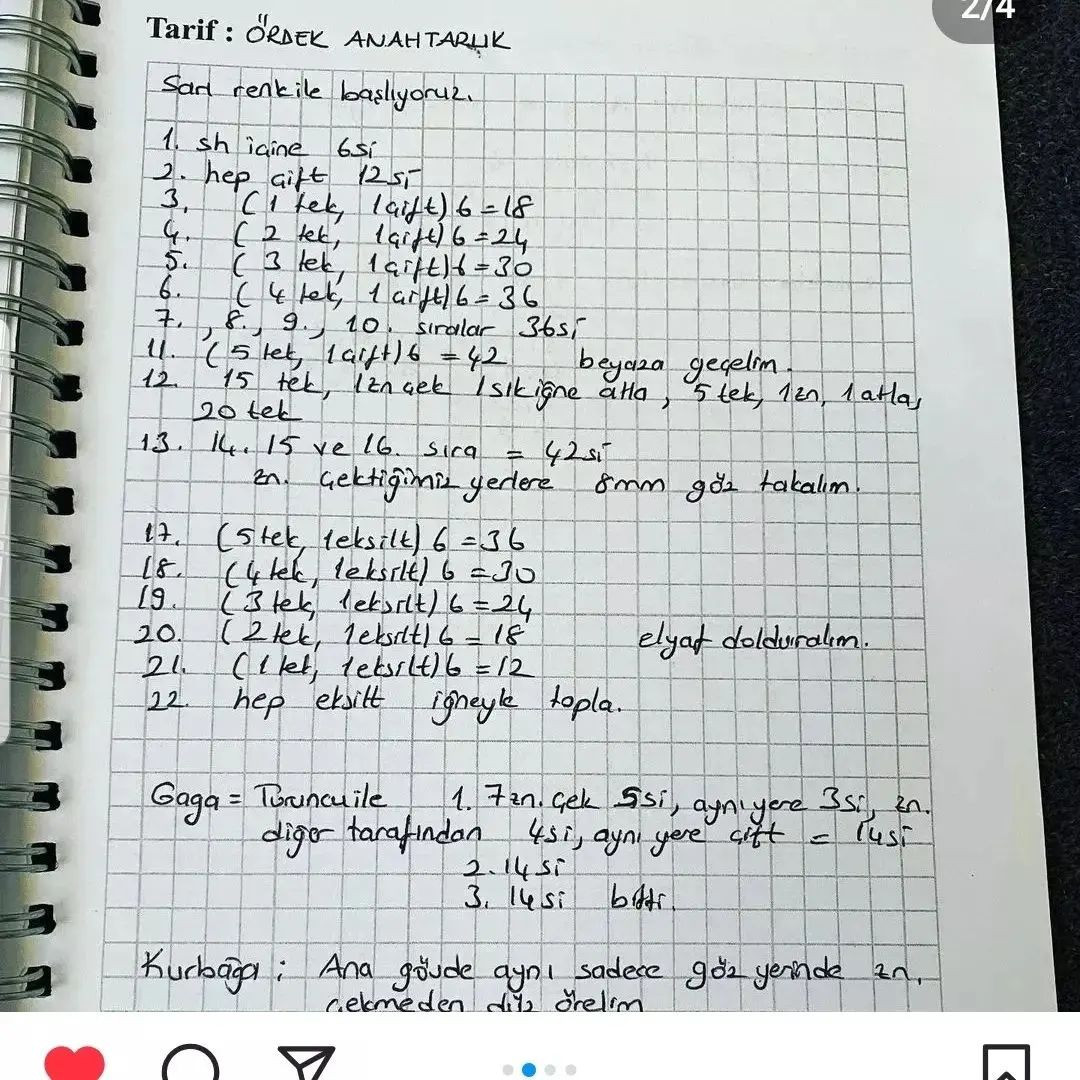 2/4
Tarif : ÖRDEK ANAHTARLIK
Sarı renkile başlıyoruz.
1. sh içine 6si
2. hep çift 12si
3. (1 tek, 1çift) 6 = 18
4. (2 tek, 1çift) 6 = 24
5. (3 tek, 1çift) 6 = 30
6. (4 tek, 1 çift) 6 = 36
7., 8., 9., 10. sıralar 36si
11. (5 tek, 1çift) 6 = 42 beyaza geçelim.
12. 15 tek, 1zn çek 1sık iğne atla, 5 tek, 1zn, 1 atla,
20 tek
13. 14. 15 ve 16. sıra = 42si
zn. çektiğimiz yerlere 8mm göz takalım.
17. (5tek, 1eksilt) 6 = 36
18. (4tek, 1eksilt) 6 = 30
19. (3tek, 1eksilt) 6 = 24
20. (2tek, 1eksilt) 6 = 18 elyaf dolduralım.
21. (1tek, 1eksilt) 6 = 12
22. hep eksilt iğneyle topla.
Gaga = Turuncu ile 1. 7zn. çek 5si, aynı yere 3si, zn.
diğer tarafından 4si, aynı yere çift = 14si
2. 14si
3. 14si bitti.
Kurbağa ; Ana gövde aynı sadece göz yerinde zn.
çekmeden düz örelim